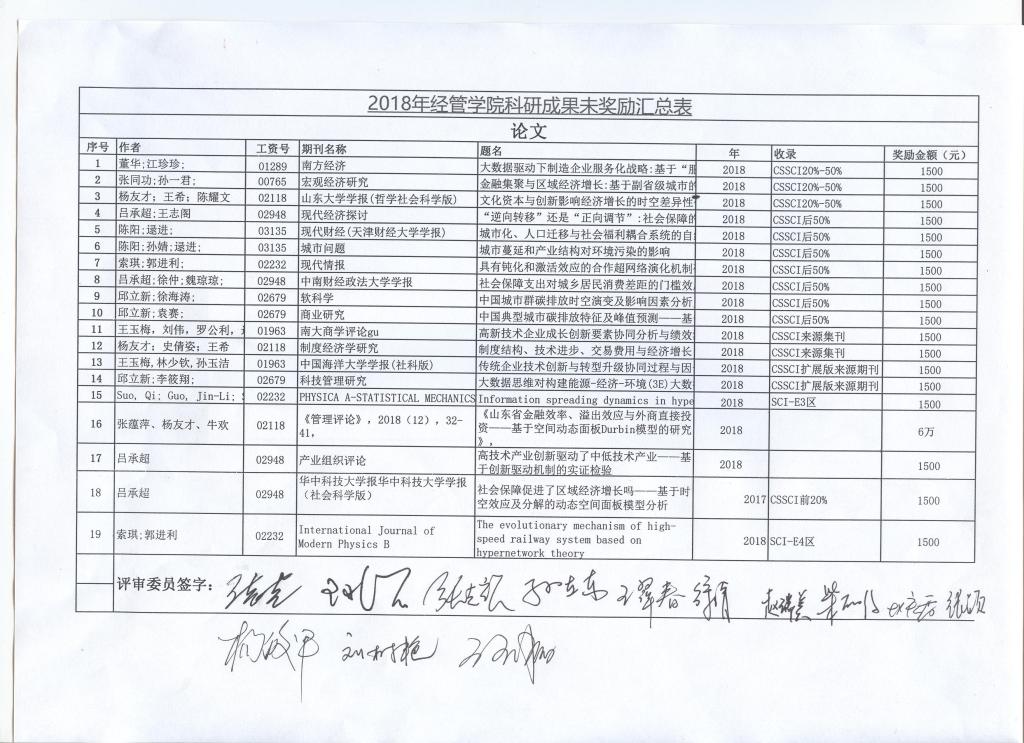 2018年经管学院科研成果未奖励汇总表
论文
序号 作者 工资号 期刊名称 题名 年 收录 奖励金额（元）
1 董华;江珍珍; 01289 南方经济 大数据驱动下制造企业服务化战略:基于“服 2018 CSSCI20%-50% 1500
2 张同功;孙一君; 00765 宏观经济研究 金融集聚与区域经济增长:基于副省级城市的 2018 CSSCI20%-50% 1500
3 杨友才; 王希; 陈耀文 02118 山东大学学报(哲学社会科学版) 文化资本与创新影响经济增长的时空差异性 2018 CSSCI20%-50% 1500
4 吕承超;王志阁 02948 现代经济探讨 “逆向转移”还是“正向调节”:社会保障的 2018 CSSCI后50% 1500
5 陈阳;逯进; 03135 现代财经(天津财经大学学报) 城市化、人口迁移与社会福利耦合系统的自 2018 CSSCI后50% 1500
6 陈阳;孙婧;逯进; 03135 城市问题 城市蔓延和产业结构对环境污染的影响 2018 CSSCI后50% 1500
7 索琪;郭进利; 02232 现代情报 具有钝化和激活效应的合作超网络演化机制 2018 CSSCI后50% 1500
8 吕承超;徐仲;魏琼琼; 02948 中南财经政法大学学报 社会保障支出对城乡居民消费差距的门槛效 2018 CSSCI后50% 1500
9 邱立新;徐海涛; 02679 软科学 中国城市群碳排放时空演变及影响因素分析 2018 CSSCI后50% 1500
10 邱立新;袁赛; 02679 商业研究 中国典型城市碳排放特征及峰值预测——基 2018 CSSCI后50% 1500
11 王玉梅, 刘伟, 罗公利, 01963 南大商学评论gu 高新技术企业成长创新要素协同分析与绩效 2018 CSSCI来源集刊 1500
12 杨友才; 史倩姿; 王希 02118 制度经济学研究 制度结构、技术进步、交易费用与经济增长 2018 CSSCI来源集刊 1500
13 王玉梅,林少钦,孙玉洁 01963 中国海洋大学学报(社科版) 传统企业技术创新与转型升级协同过程与因 2018 CSSCI扩展版来源期刊 1500
14 邱立新;李筱翔; 02679 科技管理研究 大数据思维对构建能源-经济-环境(3E)大数 2018 CSSCI扩展版来源期刊 1500
15 Suo, Qi; Guo, Jin-Li; 02232 PHYSICA A-STATISTICAL MECHANICS Information spreading dynamics in hype 2018 SCI-E3区 1500
《山东省金融效率、溢出效应与外商直接投
16 张蕴萍、杨友才、牛欢 02118 《管理评论》，2018（12），32- 资——基于空间动态面板Durbin模型的研究 2018 6万
41， 》，
17 吕承超 02948 产业组织评论 高技术产业创新驱动了中低技术产业——基 2018 1500
于创新驱动机制的实证检验
华中科技大学报华中科技大学学报 社会保障促进了区域经济增长吗——基于时
18 吕承超 02948 （社会科学版） 空效应及分解的动态空间面板模型分析 2017 CSSCI前20% 1500
The evolutionary mechanism of high-
19 索琪;郭进利 02232 International Journal of speed railway system based on 2018 SCI-E4区 1500
Modern Physics B hypernetwork theory
评审委员签字：